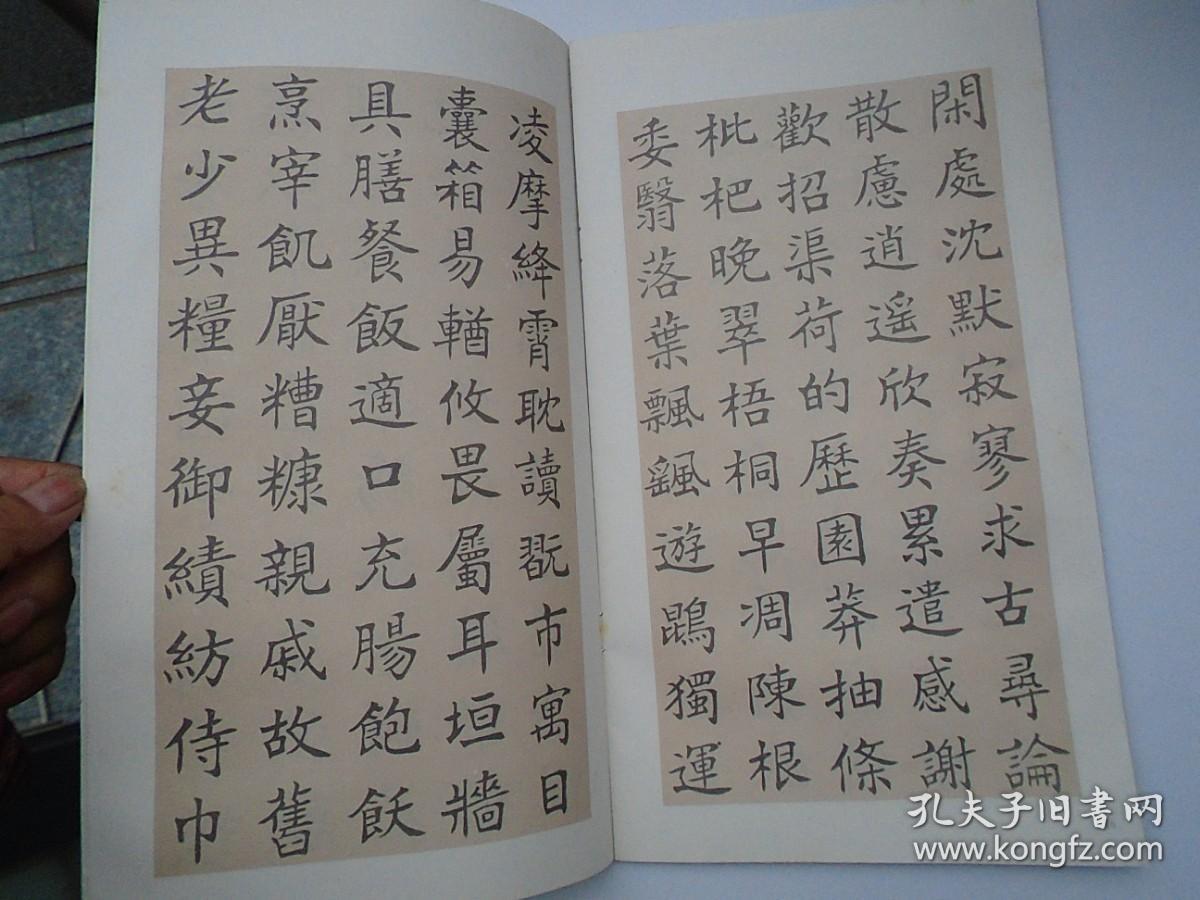 閑處沈默寂寥求古尋論
散慮逍遥欣奏累遣感謝
歡招渠荷的歷園莽抽條
枇杷晚翠梧桐早凋陳根
委翳落葉飄飖遊鵾獨運
凌摩絳霄耽讀翫市寓目
囊箱易輶攸畏屬耳垣牆
具膳餐飯適口充腸飽飫
烹宰飢厭糟糠親戚故舊
老少異糧妾御績紡侍巾
孔夫子旧书网
www.kongfz.com